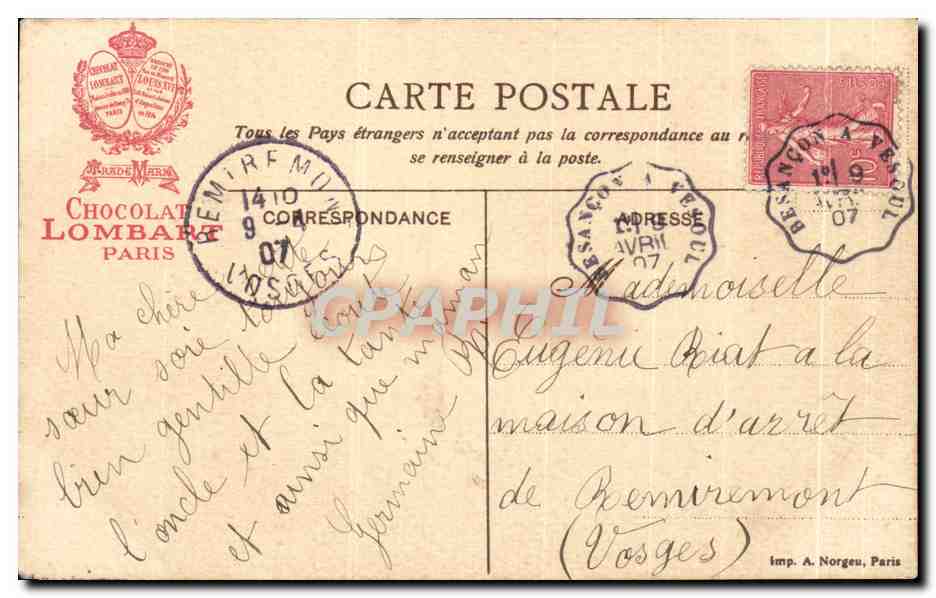 CHOCOLAT
LOMBART
PARIS
LOUIS XVI
TRADE MARK
CHOCOLAT
LOMBART
PARIS
CARTE POSTALE
Tous les Pays étrangers n'acceptant pas la correspondance au
se renseigner à la poste.
CORRESPONDANCE
ADRESSE
REMIREMON
14 10
9 4
07
VOSGES
BESANÇON A VESOUL
AVRIL
07
BESANÇON A VESOUL
1º 9
07
RÉPUBLIQUE FRANÇAISE
POSTES
10
CPAPHIL
Ma chère
sœur soie toujours
bien gentille
l'oncle et la tante
et ainsi que maman
Germaine
Mademoiselle
Eugenie Riat a la
maison d'arrêt
de Remiremont
(Vosges)
Imp. A. Norgeu, Paris